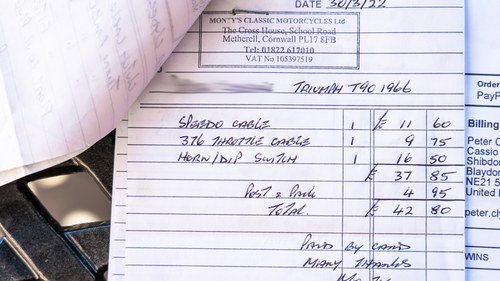 DATE 30/3/22
MONTY'S CLASSIC MOTORCYCLES Ltd
The Cross House, School Road
Metherell, Cornwall PL17 8FB
Tel: 01822 617010
VAT No 105397519
TRIUMPH T90 1966
SPEEDO CABLE 1 £ 11 60
376 THROTTLE CABLE 1 9 75
HORN/DIP SWITCH 1 16 50
£ 37 85
POST & PACK 4 95
TOTAL. £ 42 80
PAID BY CARD
MANY THANKS
Order
PayP
Billing
Peter C
Cassio
Shibdon
Blaydon
NE21 5
United
peter.cl
WINS